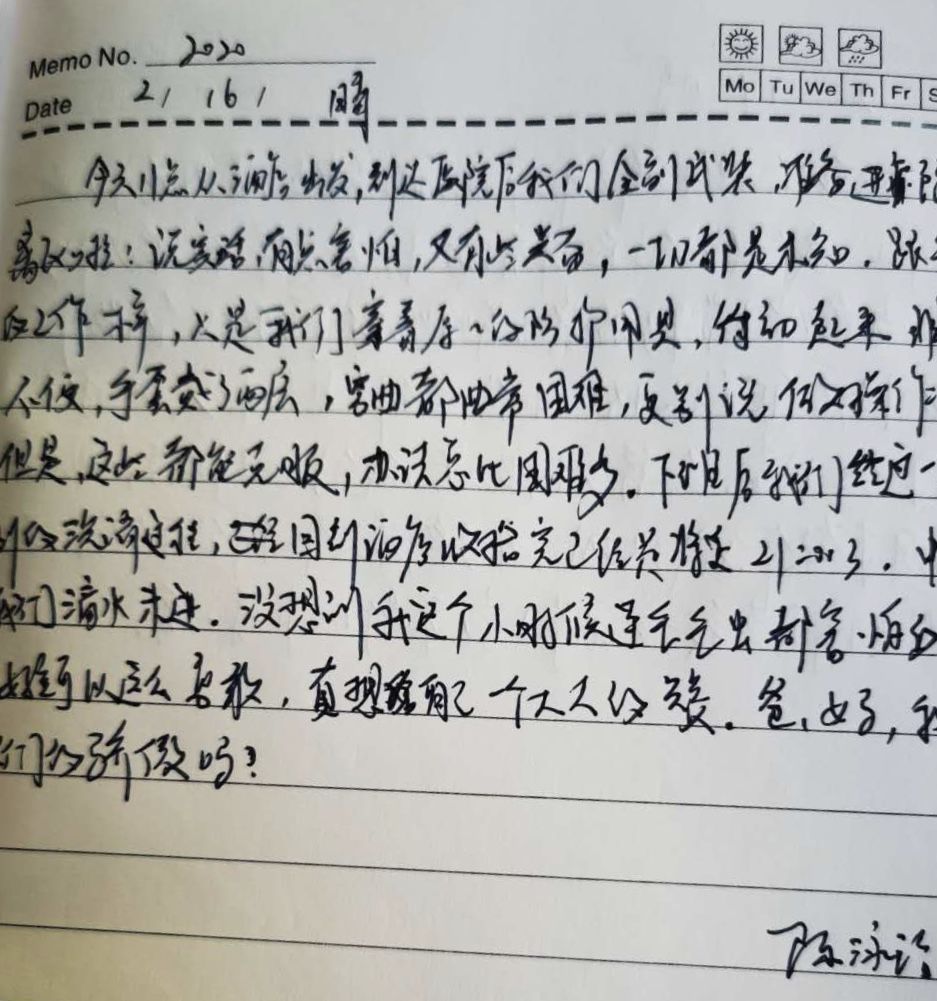 Memo No. 2020
Mo Tu We Th Fr S
Date 2/ 16/ 晴
今天11点从酒店出发,到达医院后我们全副武装,准备进
离区啦:说实话,有点害怕,又有些兴奋,一切都是未知.跟
的工作一样,只是我们穿着厚厚的防护用具,行动起来
不便,手套戴了两层,弯曲都非常困难,更别说何操作
但是,这些都能克服,办法总比困难多.下班后我们经过一
列的洗消过程,回到酒店收拾完已经是将近21:00了.中
我们滴水未进.没想到我这个小时候连毛毛虫都害怕的
女孩可以这么勇敢,真想给自己一个大大的赞.爸,妈,我
们的骄傲吗?
陈泳